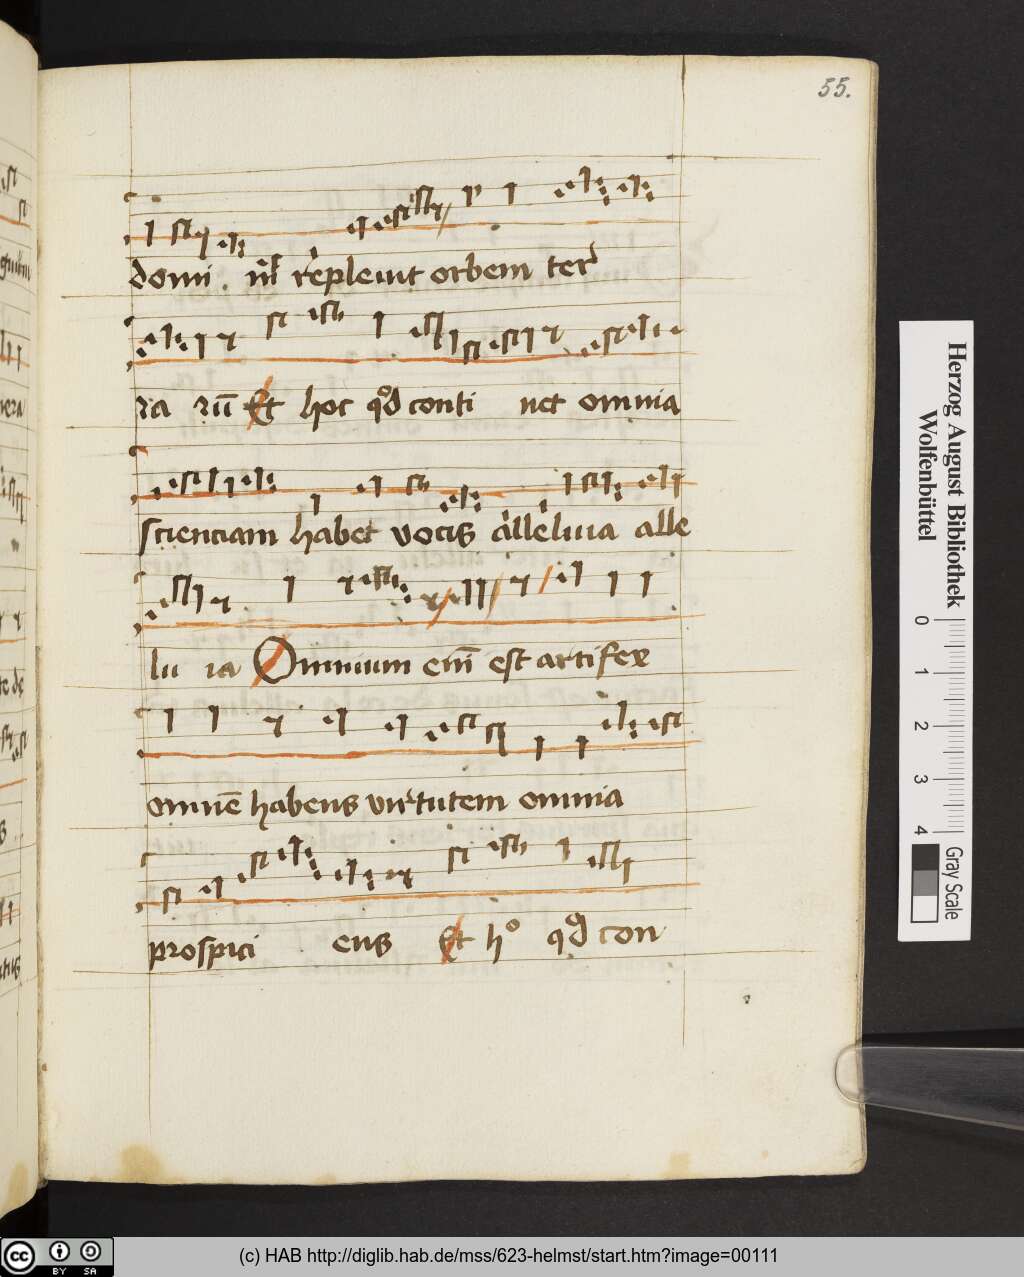 55.
domi nr̄i repleuit orbem terr
ra rū Et hoc qd conti net omnia
scientiam habet vocis alleluia alle
lu ia Omnium enī est artifex
omnē habens virtutem omnia
prospici ens Et ho qd con
Herzog August Bibliothek
Wolfenbüttel
0 1 2 3 4
Gray Scale
cc BY SA
(c) HAB http://diglib.hab.de/mss/623-helmst/start.htm?image=00111